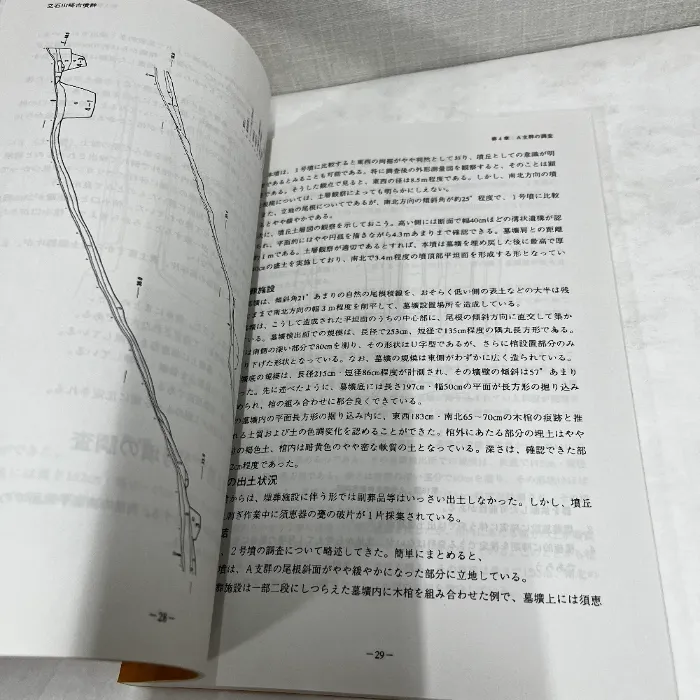 立石山崎古墳群
—28—
第4章 A支群の調査
墳は、1号墳に比較すると東西の両裾がやや判然としており、墳丘としての意識が明
があるとみることも可能である。特に調査後の外形測量図を観察すると、そのことは顕
である。そうした観点で見ると、東西の径は8.5m程度である。しかし、南北方向の墳
については、土層観察によっても明らかにしえない。
また、立地の尾根についてであるが、南北方向の傾斜角が約25°程度で、1号墳に比較
るとやや緩やかである。
に、墳丘土層図の観察を示しておこう。高い側には断面で幅40cmほどの溝状遺構が認
られ、平面的にはやや弧を描きながら4.3mあまりまで確認できる。墓壙肩との距離
約1mである。土層観察が適切であるとすれば、本墳は墓壙を埋め戻した後に最高で厚
0cmの盛土を実施しており、南北で3.4m程度の墳頂部平坦面を形成する形となってい
施設
墳は、傾斜角21°あまりの自然の尾根稜線を、おそらく低い側の表土などの大半は残
ままで南北方向の幅3m程度を削平して、墓壙設置場所を造成している。
は、こうして造成された平坦面のうちの中心部に、尾根の傾斜方向に直交して築か
いる。墓壙検出面での規模は、長径で253cm、短径で135cm程度の隅丸長方形である。
は南側の深い部分で80cmを測り、その形状はU字型であるが、さらに棺設置部分のみ
り下げた形状となっている。なお、墓壙の規模は東側がわずかに広く造られている。
底の規模は、長径215cm・短径86cm程度が計測され、その壙壁の傾斜は57°あまり
った。先に述べたように、墓壙底には長さ197cm・幅50cmの平面が長方形の掘り込み
められ、棺の組み合わせに都合良くできている。
の墓壙内の平面長方形の掘り込み内に、東西183cm・南北65～70cmの木棺の痕跡と推
れる土質および土の色調変化を認めることができた。棺外にあたる部分の埋土はやや
の褐色土、棺内は暗黄色のやや密な軟質の土となっている。深さは、確認できた部
2cm程度であった。
の出土状況
からは、埋葬施設に伴う形では副葬品等はいっさい出土しなかった。しかし、墳丘
剥ぎ作業中に須恵器の甕の破片が1片採集されている。
括
、2号墳の調査について略述してきた。簡単にまとめると、
墳は、A支群の尾根斜面がやや緩やかになった部分に立地している。
葬施設は一部二段にしつらえた墓壙内に木棺を組み合わせた例で、墓壙上には須恵
—29—